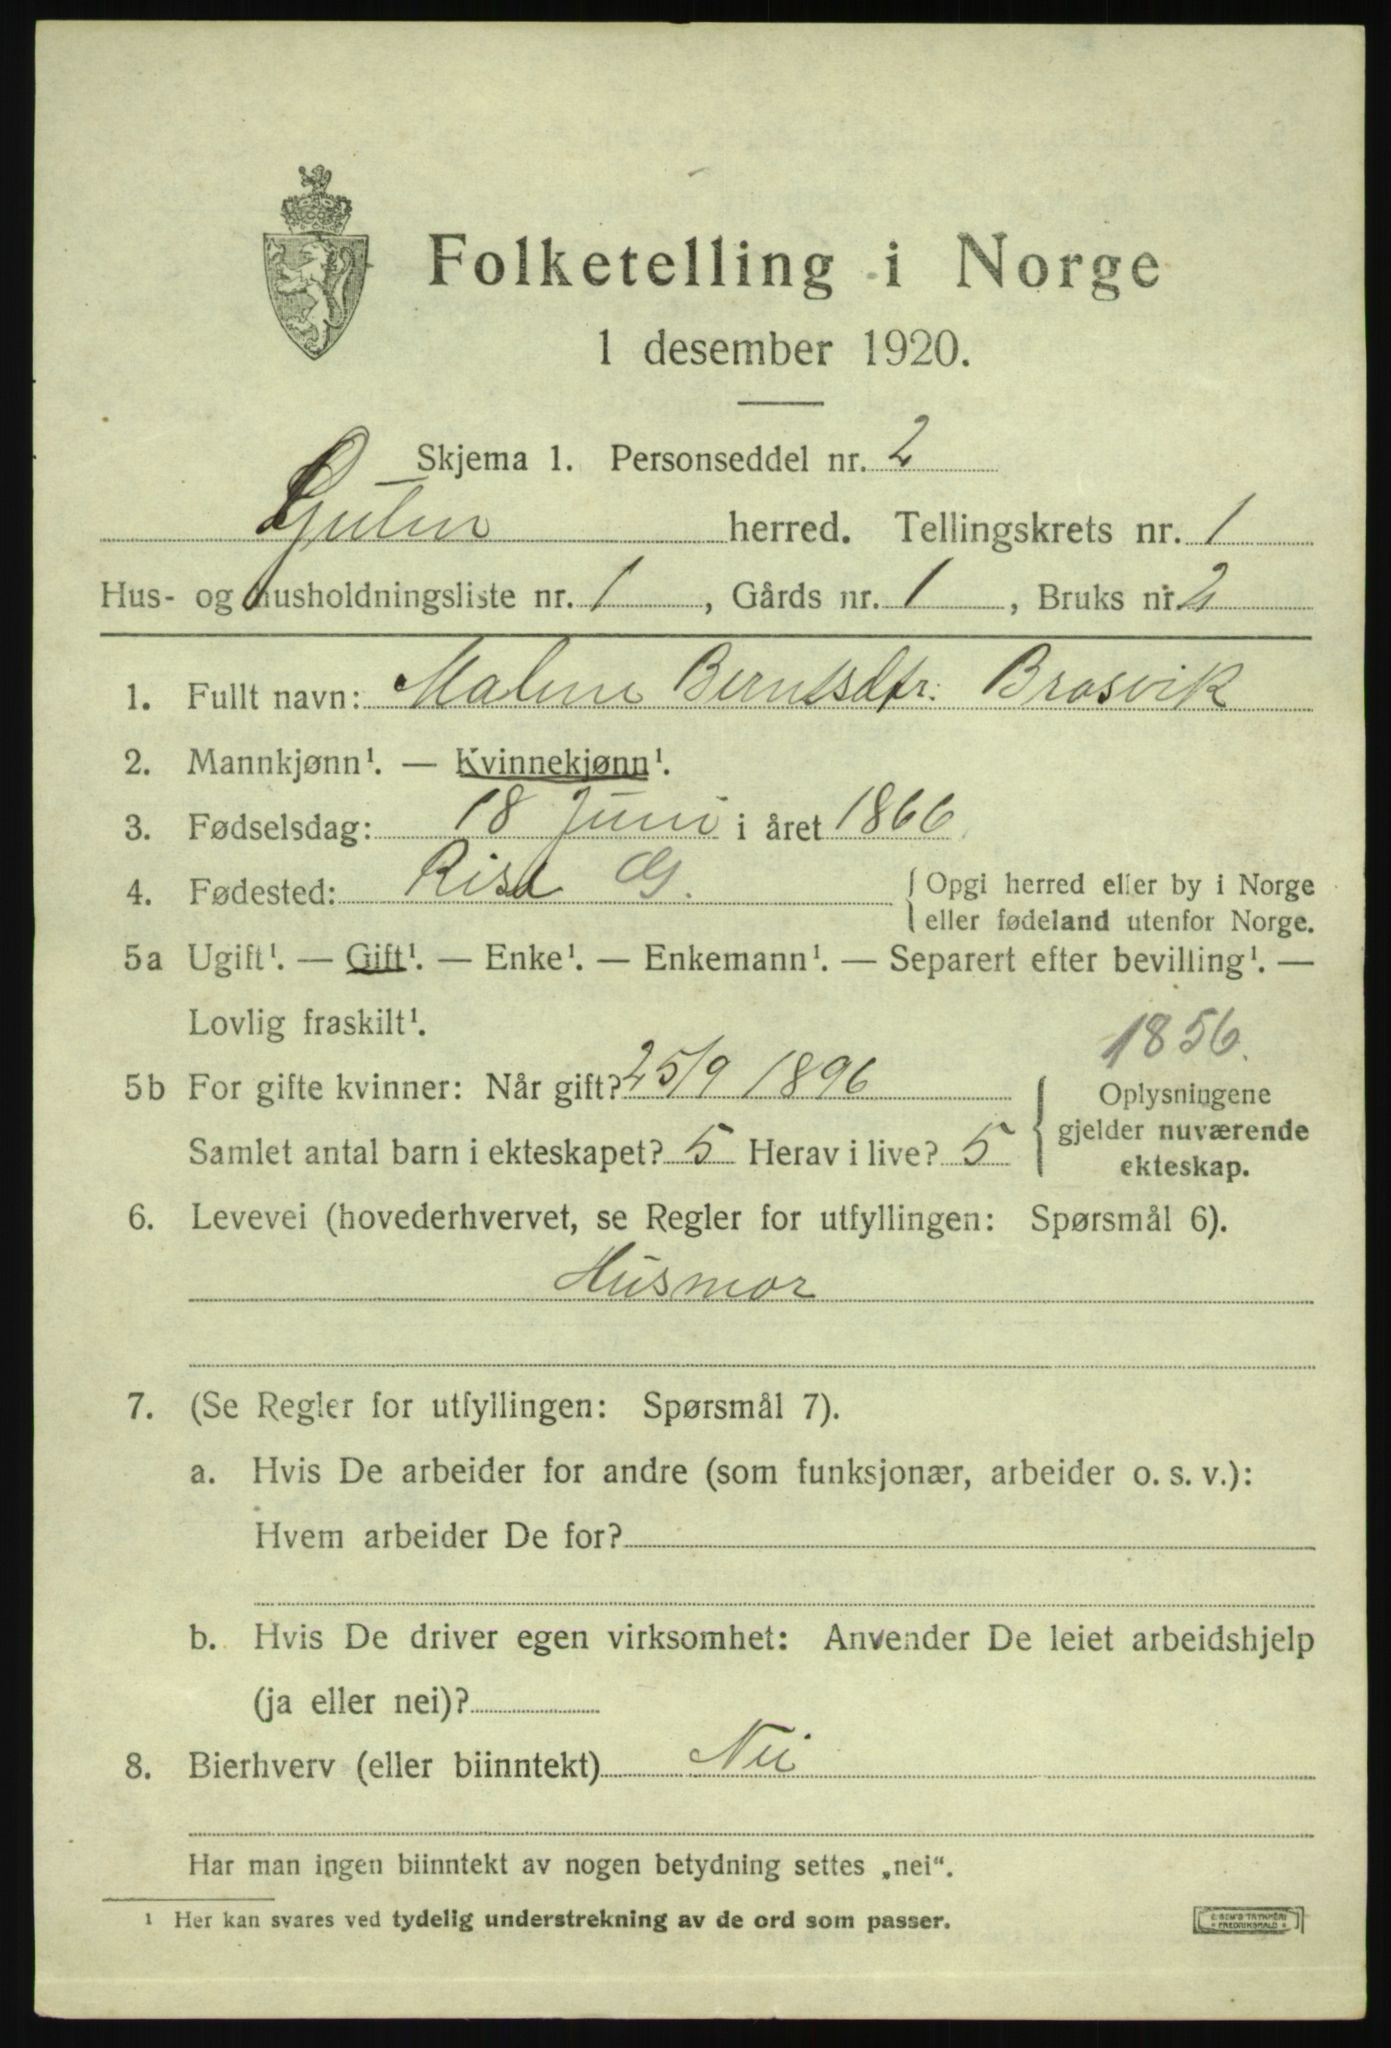 Folketelling i Norge
1 desember 1920.
Skjema 1. Personseddel nr. 2
Gulen herred. Tellingskrets nr. 1
Hus- og husholdningsliste nr. 1, Gårds nr. 1, Bruks nr. 2
1. Fullt navn: Malene Berntsdtr. Brosvik
2. Mannkjønn¹. — Kvinnekjønn¹.
3. Fødselsdag: 18 Juni i året 1866
4. Fødested: G. { Opgi herred eller by i Norge
eller fødeland utenfor Norge.
5a Ugift¹. — Gift¹. — Enke¹. — Enkemann¹. — Separert efter bevilling¹. —
Lovlig fraskilt¹.
1856.
5b For gifte kvinner: Når gift? 25/9 1896
Samlet antal barn i ekteskapet? 5 Herav i live? 5
{ Oplysningene
gjelder nuværende
ekteskap.
6. Levevei (hovederhvervet, se Regler for utfyllingen: Spørsmål 6).
Husmor
7. (Se Regler for utfyllingen: Spørsmål 7).
a. Hvis De arbeider for andre (som funksjonær, arbeider o. s. v.):
Hvem arbeider De for?
b. Hvis De driver egen virksomhet: Anvender De leiet arbeidshjelp
(ja eller nei)?
8. Bierhverv (eller biinntekt) Nei
Har man ingen biinntekt av nogen betydning settes „nei“.
¹ Her kan svares ved tydelig understrekning av de ord som passer.